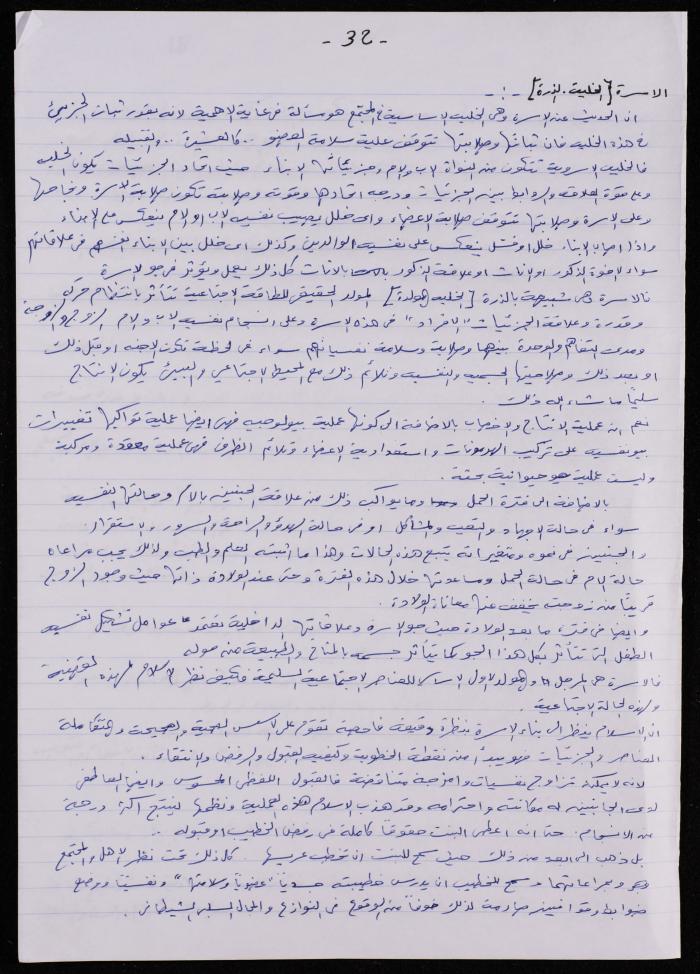 - 32 -
الاسرة [الخلية . الذرة] - : -
ان الحديث عن الاسرة وهي الخلية الاساسية في المجتمع هو مسألة في غاية الاهمية لانه بقدر ثبات الجزيئ
في هذه الخلية فان ثباتها وصلابتها تتوقف علية سلامة العضو .. كالعشيرة .. والقبيله
فالخلية الاسروية تتكون من النواة الاب والام وجزيئاتها الابناء حيث اتحاد الجزيئيات يكون الخلية
وعلى قوة العلاقة والروابط بين الجزيئيات ودرجة اتحادها وقوته وصلابته تكون صلابة الاسرة ونجاحها
وعلى الاسرة وصلابتها تتوقف صلابة الاعضاء واى خلل يصيب نفسية الاب او الام ينعكس على الابناء
واذا اصاب الابناء خلل او فشل ينعكس على نفسية الوالدين وكذلك اى خلل بين الابناء انفسهم في علاقاتهم
سواء الاخوة الذكور او الاناث او علاقة الذكور بالاناث كل ذلك يعمل ويؤثر في جو الاسرة
فالاسرة هي شبيهة بالذرة [الخلية المولدة] المولد الحقيقي للطاقة الاجتماعية تتأثر بانتظام حركة
وقدرة وعلاقة الجزيئيات "الافراد" في هذه الاسرة وعلى انسجام نفسية الاب والام الزوج والزوجة
ومدى التفاهم والوحدة بينها وصلابة وسلامة نفسياتهم سواء في لحظة تكون الاجنه او قبل ذلك
او بعد ذلك وصلاحيتها الجسمية والنفسية وتلائم ذلك مع المحيط الاجتماعي والبيئي يكون الانتاج
سليماً ما شاء الله ذلك .
نعم ان عملية الانتاج والاخصاب بالاضافة الى كونها عملية بيولوجيه فهي ايضا عملية تواكبها تغييرات
بيونفسيه على تركيب الهرمونات واستعدادية الاعضاء وتلائم الظرف فهي عملية معقدة ومركبة
وليست عملية حيوانية بحتة .
بالاضافة الى فترة الحمل وما يواكب ذلك من علاقة الجنين بالام وحالتها النفسية
سواء في حالة الاجهاد والتعب والمشاكل او في حالة الهدوء والراحة والسرور والاستقرار.
والجنين في نموه ومتغيراته يتبع هذه الحالات وهذا ما اثبته العلم والطب ولذلك يجب مراعاه
حالة الام في حالة الحمل ومساعدتها خلال هذه الفترة وحتى عند الولادة ذاتها حيث وجود الزوج
قريباً من زوجته يخفف عنها معاناة الولادة .
وايضا في فترة ما بعد الولادة حيث جو الاسرة وعلاقاتها الداخلية تعتمد عوامل تشكيل نفسية
الطفل التى تتأثر بكل هذا الجو كما يتأثر جسمه بالمناخ والطبيعة من حوله
فالاسرة هي المرجل والمولد الاول الاساس للعناصر الاجتماعية السليمة فكيف نظر الاسلام لهذه
ولهذه الحالة الاجتماعية .
ان الاسلام ينظر الى بناء الاسرة بنظرة دقيقة فاحصة تقوم على الاسس والصحيحة والمتكاملة
العناصر والجزئيات فهو يبدأ من نقطة الخطوبة وكيفية القبول والرفض والانتقاء .
لانه لا يمكن تزاوج نفسيات وامزجة متناقضة فالقبول اللفظي المحسوس وايضا العاطفي
لدى الجانبين له مكانته واحترامه وقد هذب الاسلام هذه العملية ونظمها لينتج اكثر درجة
من الانسجام. حتى انه اعطى البنت حقوقاً كاملة في رفض الخطيب او قبوله ..
بل ذهب الى ابعد من ذلك حين سمح للبنت ان تخطب عريسها .. كل ذلك تحت نظر الاهل والمجتمع
ومراعاتهما وسمح للخطيب ان يدرس خطيبته جسدياً "عضوياً وسلامتها" ونفسيا ووضع
ضوابط وقوانين صارمة لذلك خوفاً من الوقوع في النوازع والمجال السلبي الشيطاني .